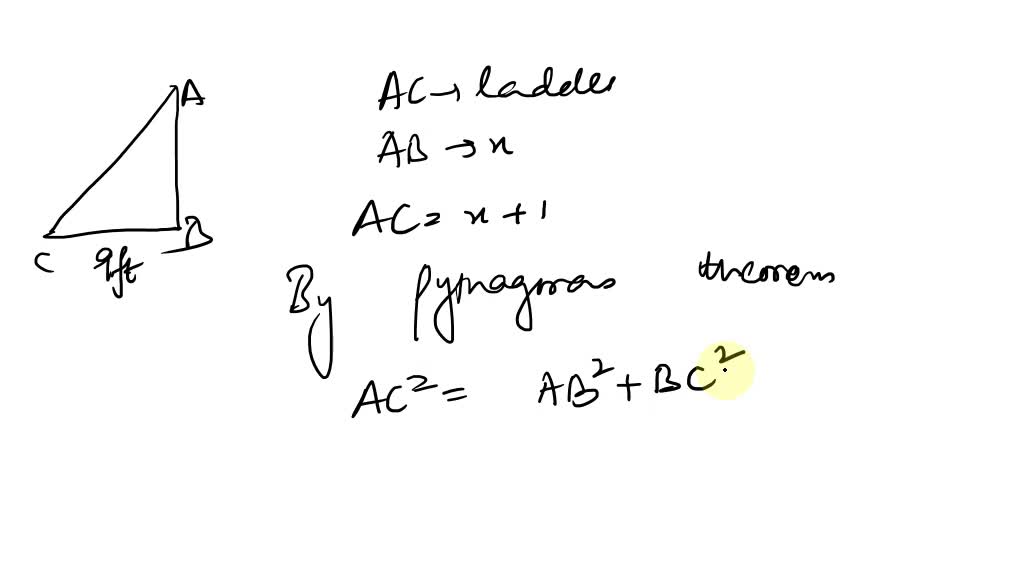 A
B
C
9ft
AC → ladder
AB → x
AC = x + 1
By Pythagoras theorem
AC² = AB² + BC²